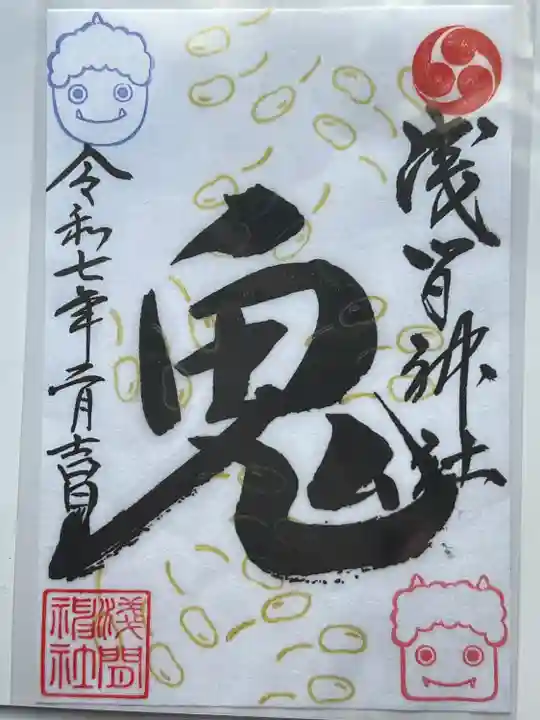 浅间神社
鬼
令和七年二月吉日
淺間神社